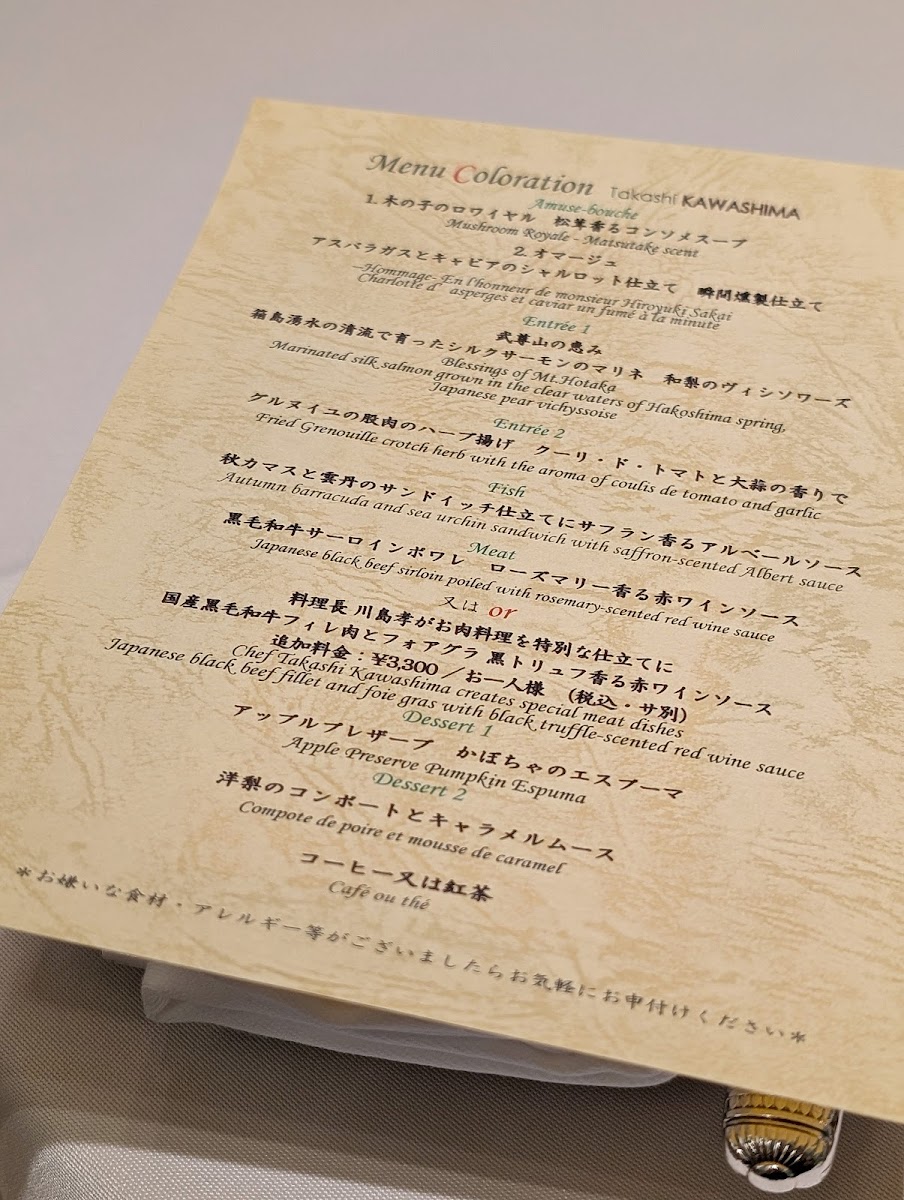 Menu Coloration Takashi KAWASHIMA
Amuse-bouche
1.木の子のロワイヤル 松茸香るコンソメスープ
Mushroom Royale - Matsutake scent
2.オマージュ
アスパラガスとキャビアのシャルロット仕立て 瞬間燻製仕立て
-Hommage- En l'honneur de monsieur Hiroyuki Sakai
Charlotte d' asperges et caviar un fumé à la minute
Entrée 1
武尊山の恵み
箱島湧水の清流で育ったシルクサーモンのマリネ 和梨のヴィシソワーズ
Blessings of Mt.Hotaka
Marinated silk salmon grown in the clear waters of Hakoshima spring,
Japanese pear vichyssoise
Entrée 2
グルヌイユの股肉のハーブ揚げ クーリ・ド・トマトと大蒜の香りで
Fried Grenouille crotch herb with the aroma of coulis de tomato and garlic
Fish
秋カマスと雲丹のサンドイッチ仕立てにサフラン香るアルベールソース
Autumn barracuda and sea urchin sandwich with saffron-scented Albert sauce
Meat
黒毛和牛サーロインポワレ ローズマリー香る赤ワインソース
Japanese black beef sirloin poiled with rosemary-scented red wine sauce
又は or
料理長 川島孝がお肉料理を特別な仕立てに
国産黒毛和牛フィレ肉とフォアグラ 黒トリュフ香る赤ワインソース
追加料金：¥3,300／お一人様 (税込・サ別)
Chef Takashi Kawashima creates special meat dishes
Japanese black beef fillet and foie gras with black truffle-scented red wine sauce
Dessert 1
アップルプレザーブ かぼちゃのエスプーマ
Apple Preserve Pumpkin Espuma
Dessert 2
洋梨のコンポートとキャラメルムース
Compote de poire et mousse de caramel
コーヒー又は紅茶
Café ou thé
＊お嫌いな食材・アレルギー等がございましたらお気軽にお申付けください＊